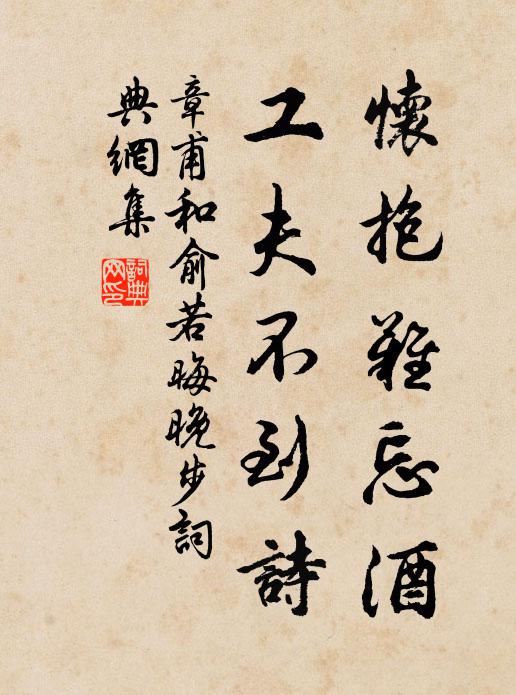 懷抱難忘酒
工夫不到詩
章甫和俞若晦晚步詞
典網集
詞典網印